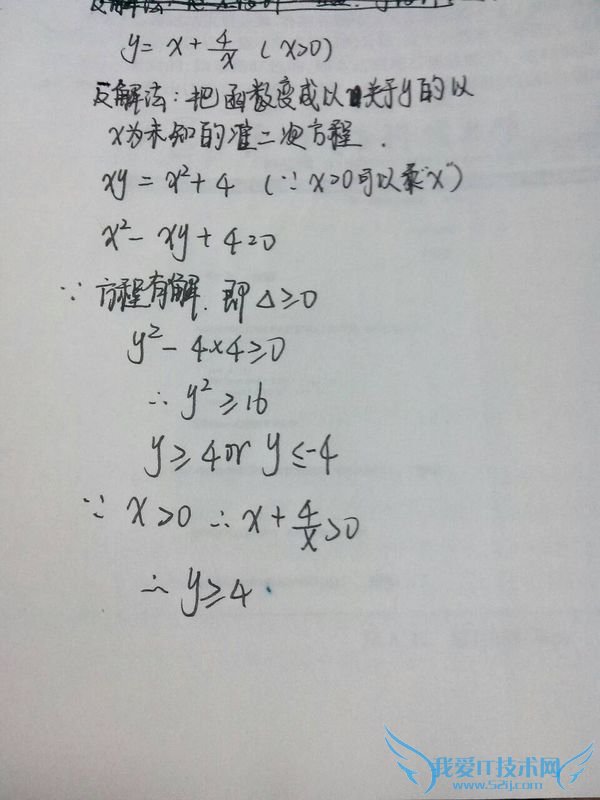 反解法:
y = x + 4/x (x>0)
反解法:把函数变成以关于y的以
x为未知的准二次方程.
xy = x²+4 (∵ x>0可以乘"x")
x² - xy + 4=0
∵ 方程有解. 即 Δ≥0
y² - 4×4≥0
∴ y² ≥16
y≥4 or y≤-4
∵ x>0 ∴ x + 4/x >0
∴ y≥4
我爱IT技术网
www.52ij.com